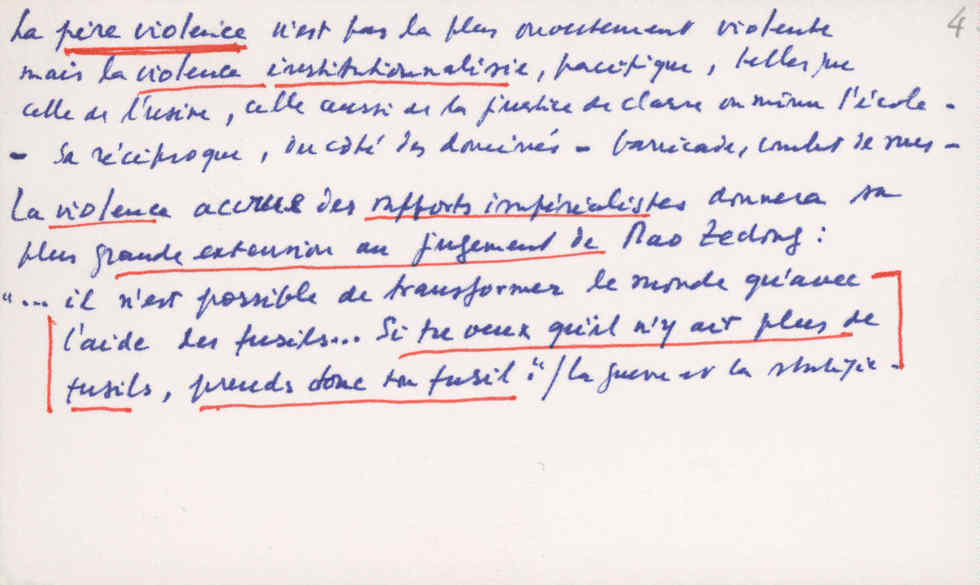 4
La pire violence n'est pas la plus ouvertement violente
mais la violence institutionnalisée, pacifique, telle que
celle de l'usine, celle aussi de la justice de classe ou même l'école -
- Sa réciproque, du côté des dominés - barricade, combat de rues -
La violence accrue des rapports impérialistes donnera sa
plus grande extension au jugement de Mao Zedong :
"... il n'est possible de transformer le monde qu'avec
l'aide des fusils... Si tu veux qu'il n'y ait plus de
fusils, prends donc ton fusil." / La guerre et la stratégie -